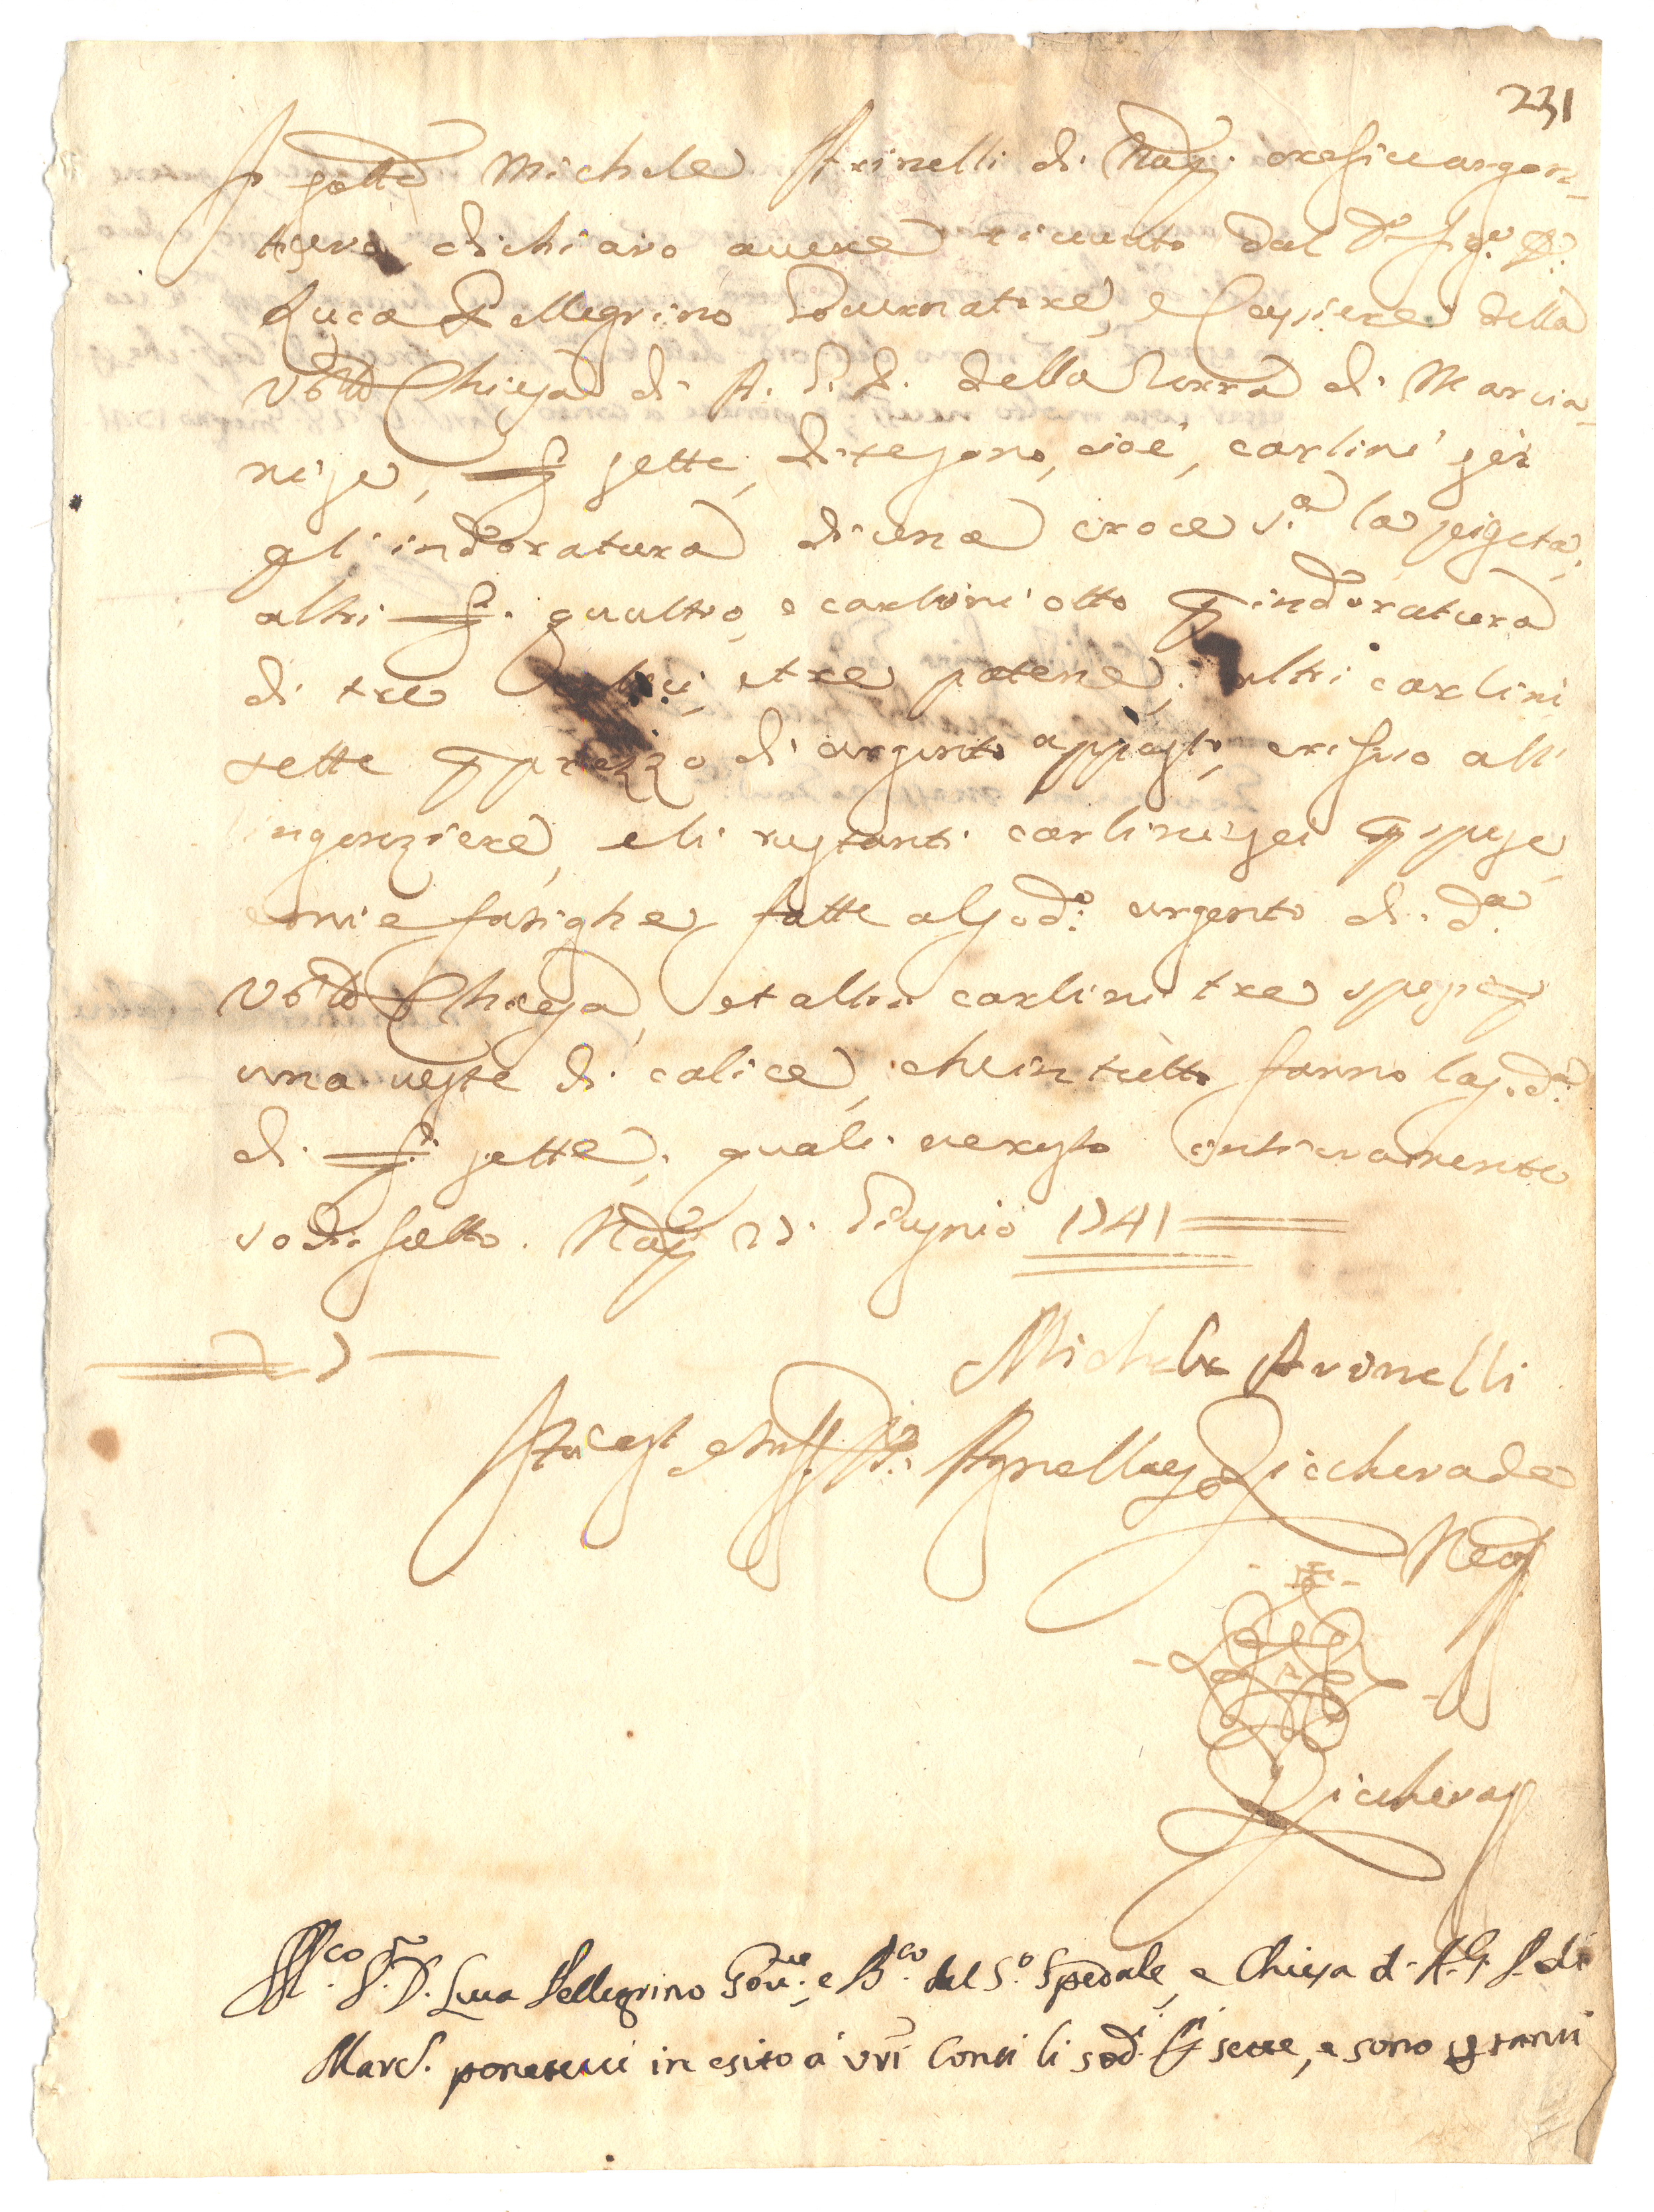 231
Io sotto Michele Avinelli di Nap. orefice argen-
tiero dichiaro avere ricevuto dal Dr Sig.r D.
Luca Pellegrino Governatore, e Cassiere della
Ven.le Chiesa di A. G. P. della Terra di Marcia-
nise, sette, disteseno, cioè, carlini sei
p l'indoratura di una croce s.a la
altri quattro, e carlini otto p indoratura
di tre calici, e tre patene, altri carlini
sette p prezzo di argento apposto, e rifuso all'
ingenziere, e li restanti carlini sei p spese
e mie fatighe fatte al sod.o argento di d.a
Ven.le Chiesa, et altri carlini tre spesi p
una veste di calice, che in tutto fanno la s.d.a
di sette, quali resto intieramente
sodisfatto. Nap 27 Giugnio 1741
7
Michele Avinelli
Ita est Agnellus Zicchera de
Neap.
Zicchera
M.co S.r D. Luca Pellegrino Gov.re e B.co del S.o Spedale, e Chiesa d. A. G. P. di
Marc. ponetevi in esito a vri Conti li sod.i sette, e sono p tanti